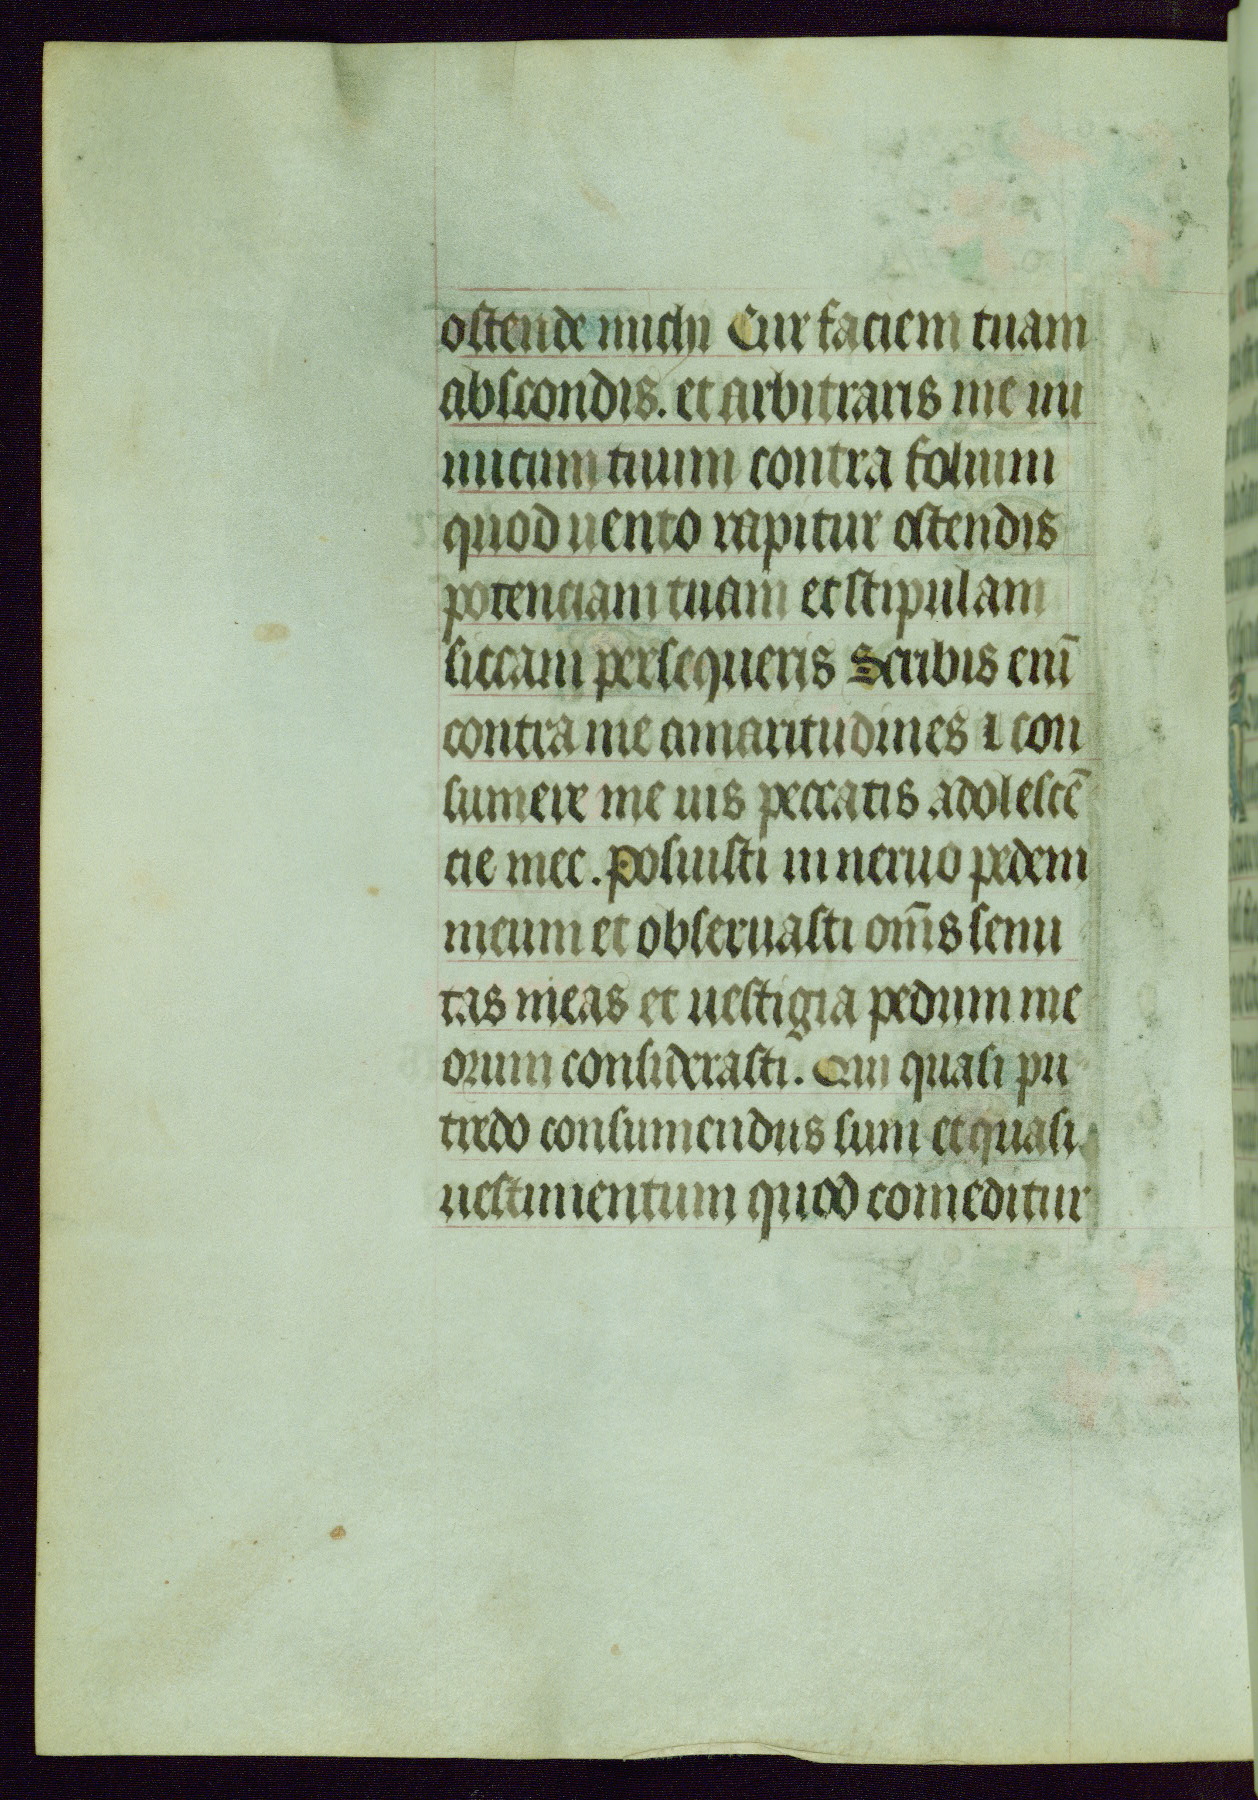 ostende michi Cur faciem tuam
abscondis. et arbitraris me ini
micum tuum contra folium
quod uento rapitur ostendis
potenciam tuam et stipulam
siccam persequeris Scribis enī
contra me amaritudines ⁊ con
sumere me uis peccatis adolescē
cie mee. Posuisti in neruo pedem
meum et obseruasti om̄s semi
tas meas et uestigia pedum me
orum considerasti. Qui quasi pu
tredo consumendus sum et quasi
uestimentum quod comeditur